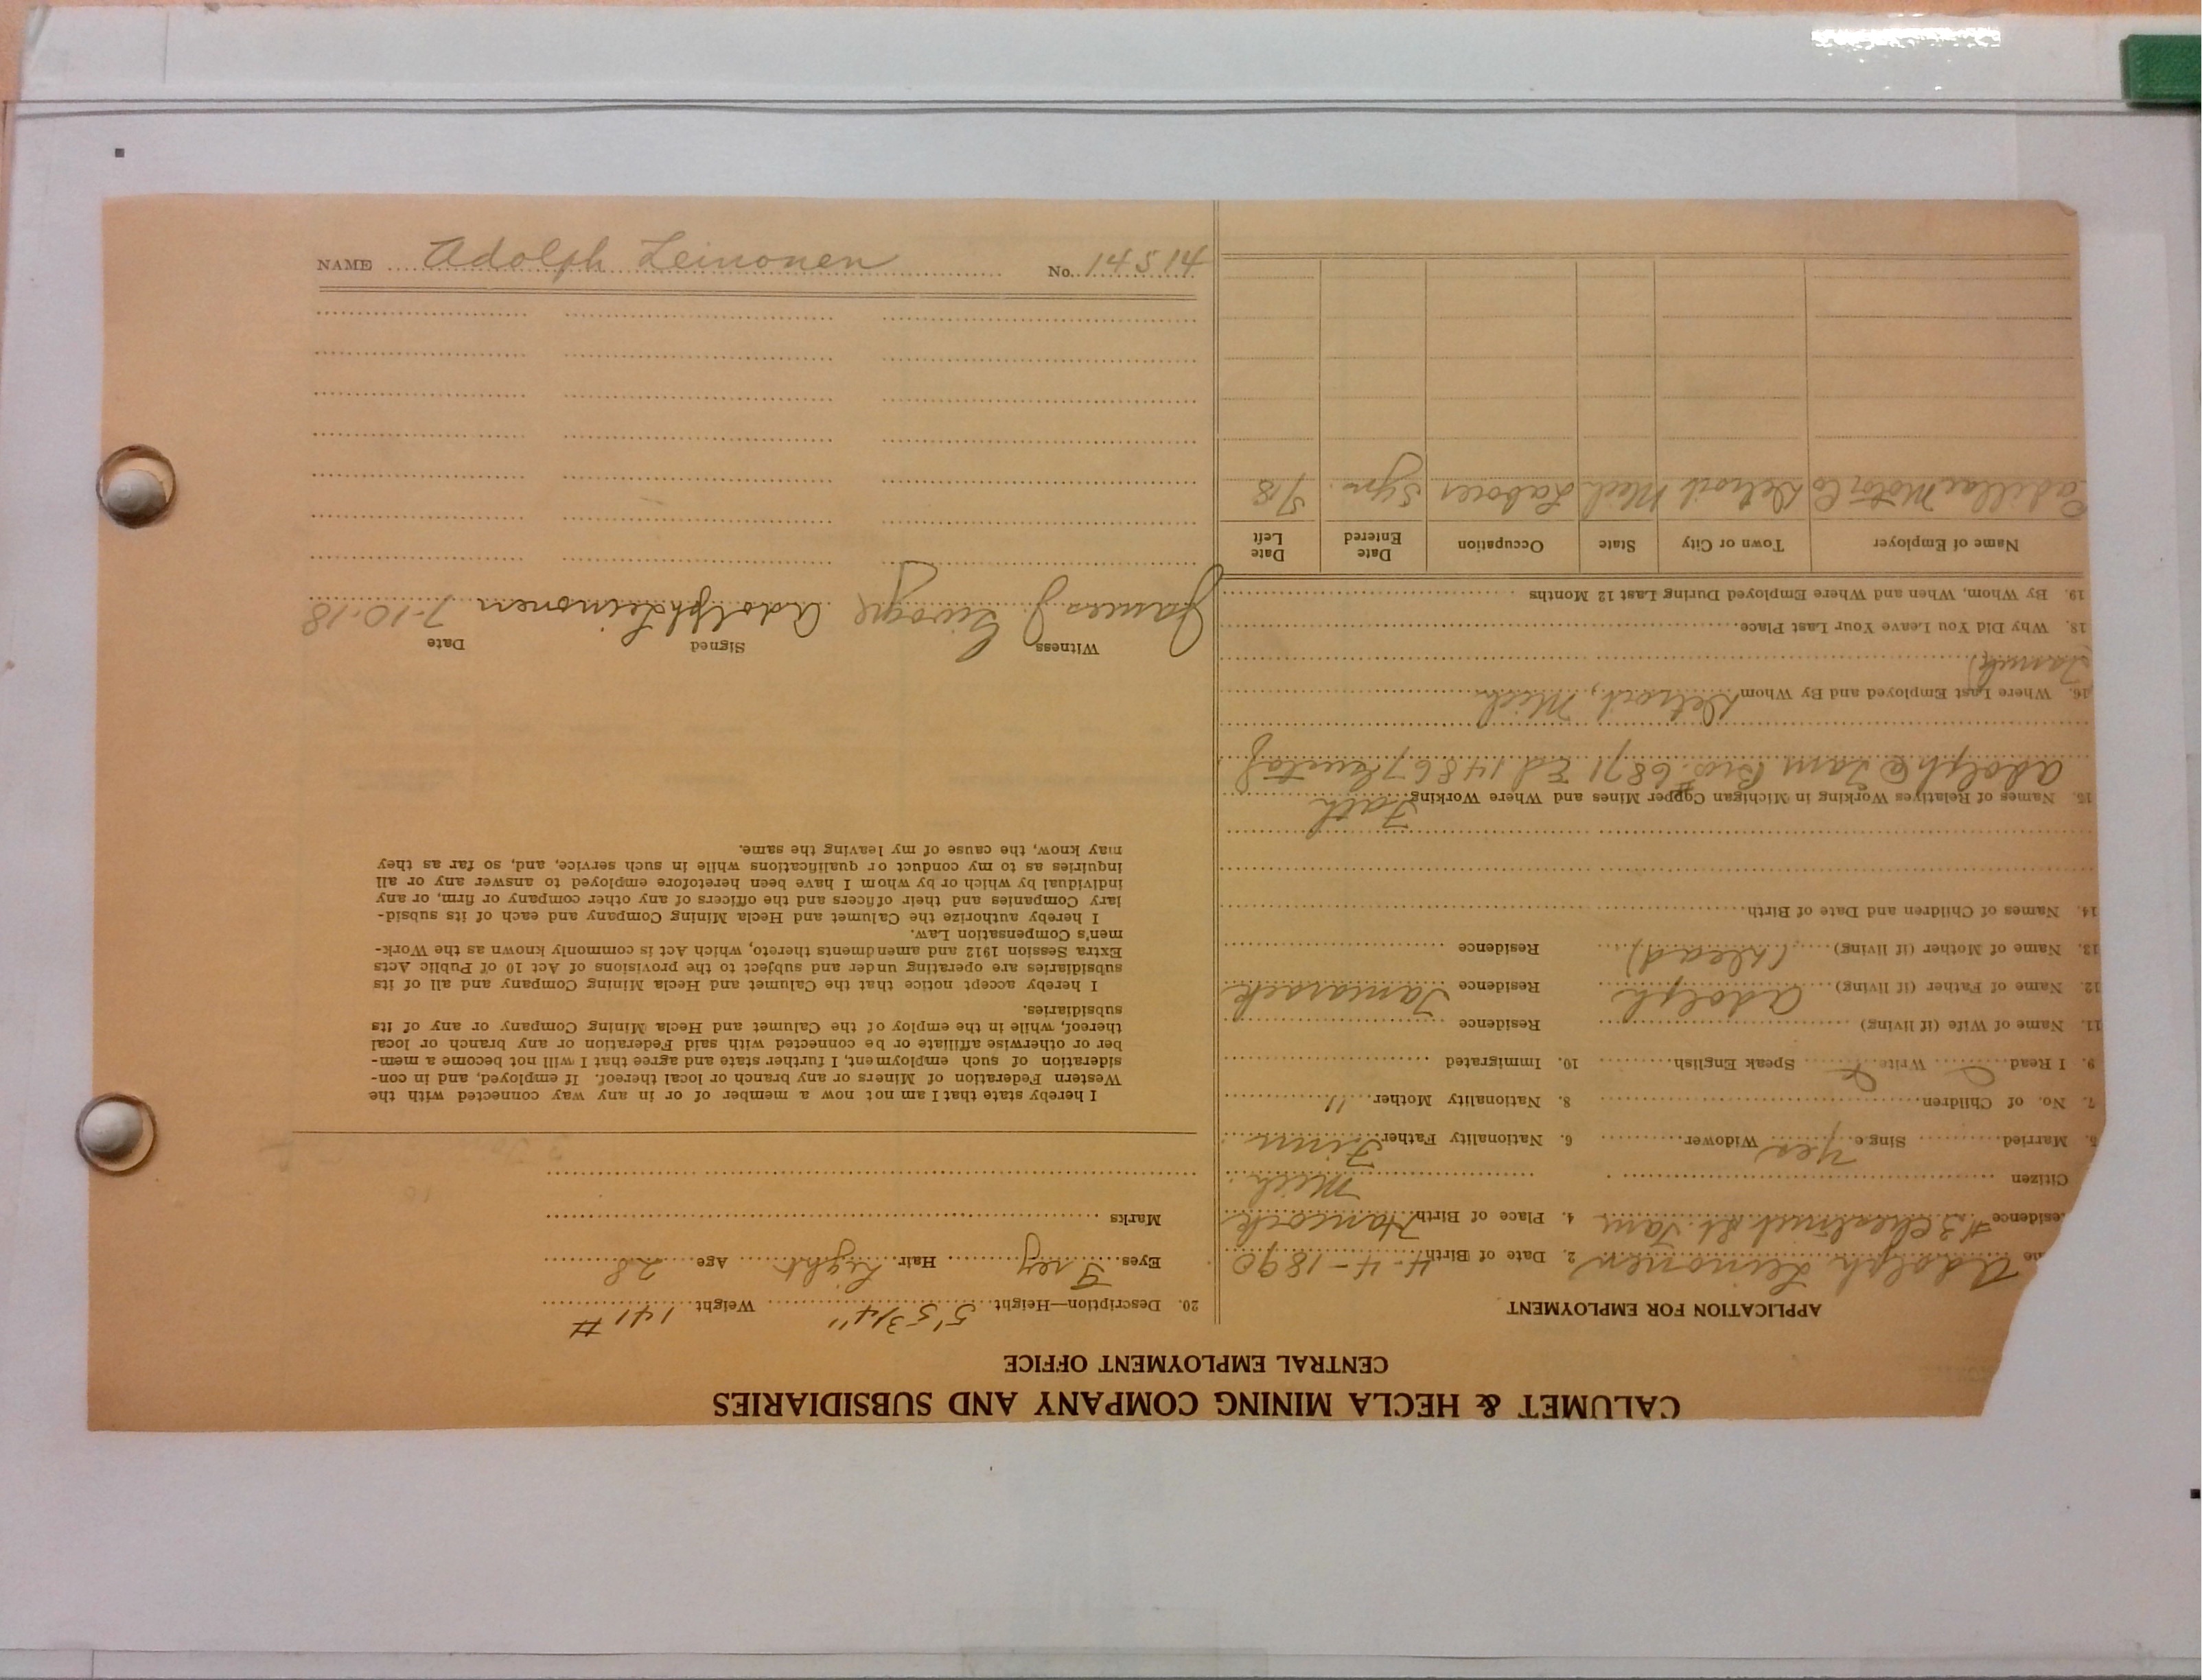 CALUMET & HECLA MINING COMPANY AND SUBSIDIARIES
CENTRAL EMPLOYMENT OFFICE
APPLICATION FOR EMPLOYMENT
me Adolph Leinonen 2. Date of Birth 4-4-1890
esidence #3 Chestnut St. Tam 4. Place of Birth Hancock
Citizen Mich.
5. Married Sing e yes Widower 6. Nationality Father Finn
7. No. of Children 8. Nationality Mother "
9. I Read Write Speak English 10. Immigrated
11. Name of Wife (if living) Residence
12. Name of Father (if living) Adolph Residence Tamarack
13. Name of Mother (if living) (Dead) Residence
14. Names of Children and Date of Birth
15. Names of Relatives Working in Michigan Copper Mines and Where Working Fath
Adolph @ Tam Bro. #6871 Ed 14867
16. Where Last Employed and By Whom Detroit, Mich
18. Why Did You Leave Your Last Place
19. By Whom, When and Where Employed During Last 12 Months
Name of Employer Town or City State Occupation Date Entered Date Left
Cadillac Motor Co Detroit Mich Laborer 5/18
20. Description—Height 5' 5 3/4" Weight 141 #
Eyes Grey Hair Light Age 28
Marks
I hereby state that I am not now a member of or in any way connected with the
Western Federation of Miners or any branch or local thereof. If employed, and in con-
sideration of such employment, I further state and agree that I will not become a mem-
ber or otherwise affiliate or be connected with said Federation or any branch or local
thereof, while in the employ of the Calumet and Hecla Mining Company or any of its
subsidiaries.
I hereby accept notice that the Calumet and Hecla Mining Company and all of its
subsidiaries are operating under and subject to the provisions of Act 10 of Public Acts
Extra Session 1912 and amendments thereto, which Act is commonly known as the Work-
men's Compensation Law.
I hereby authorize the Calumet and Hecla Mining Company and each of its subsid-
iary Companies and their officers and the officers of any other company or firm, or any
individual by which or by whom I have been heretofore employed to answer any or all
inquiries as to my conduct or qualifications while in such service, and, so far as they
may know, the cause of my leaving the same.
Witness Signed Date
James J. Adolph Leinonen 7-10-18
NAME Adolph Leinonen No. 14514